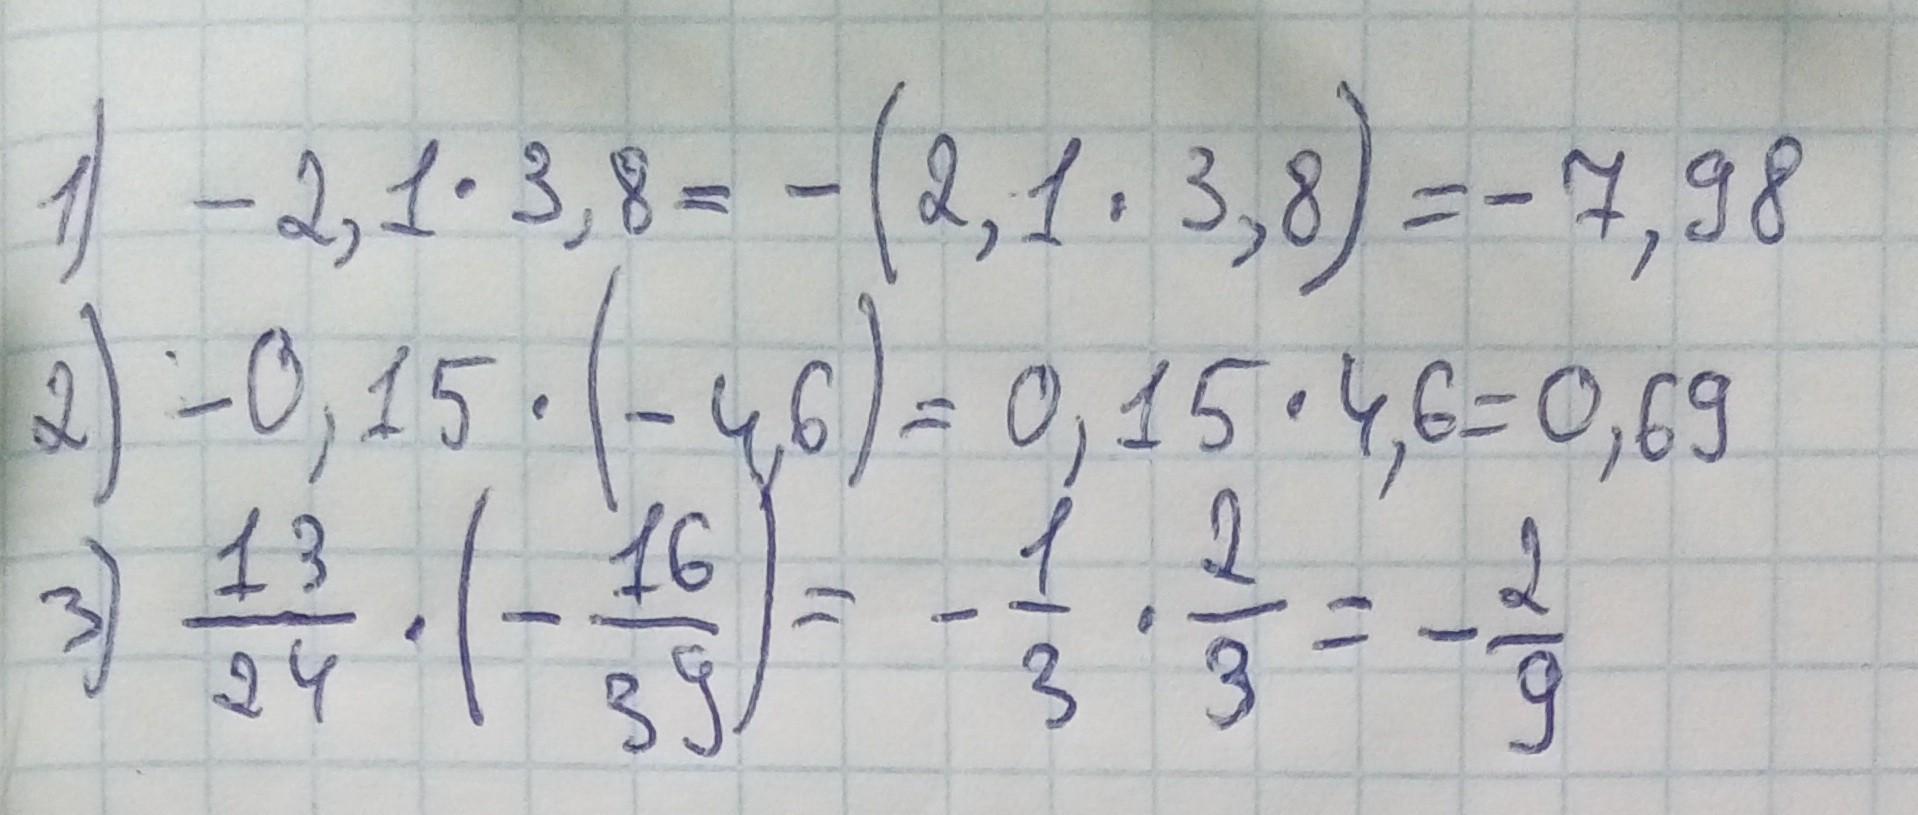 1) -2,1 · 3,8 = -(2,1 · 3,8) = -7,98
2) -0,15 · (-4,6) = 0,15 · 4,6 = 0,69
3) 13/24 · (-16/39) = -1/3 · 2/3 = -2/9